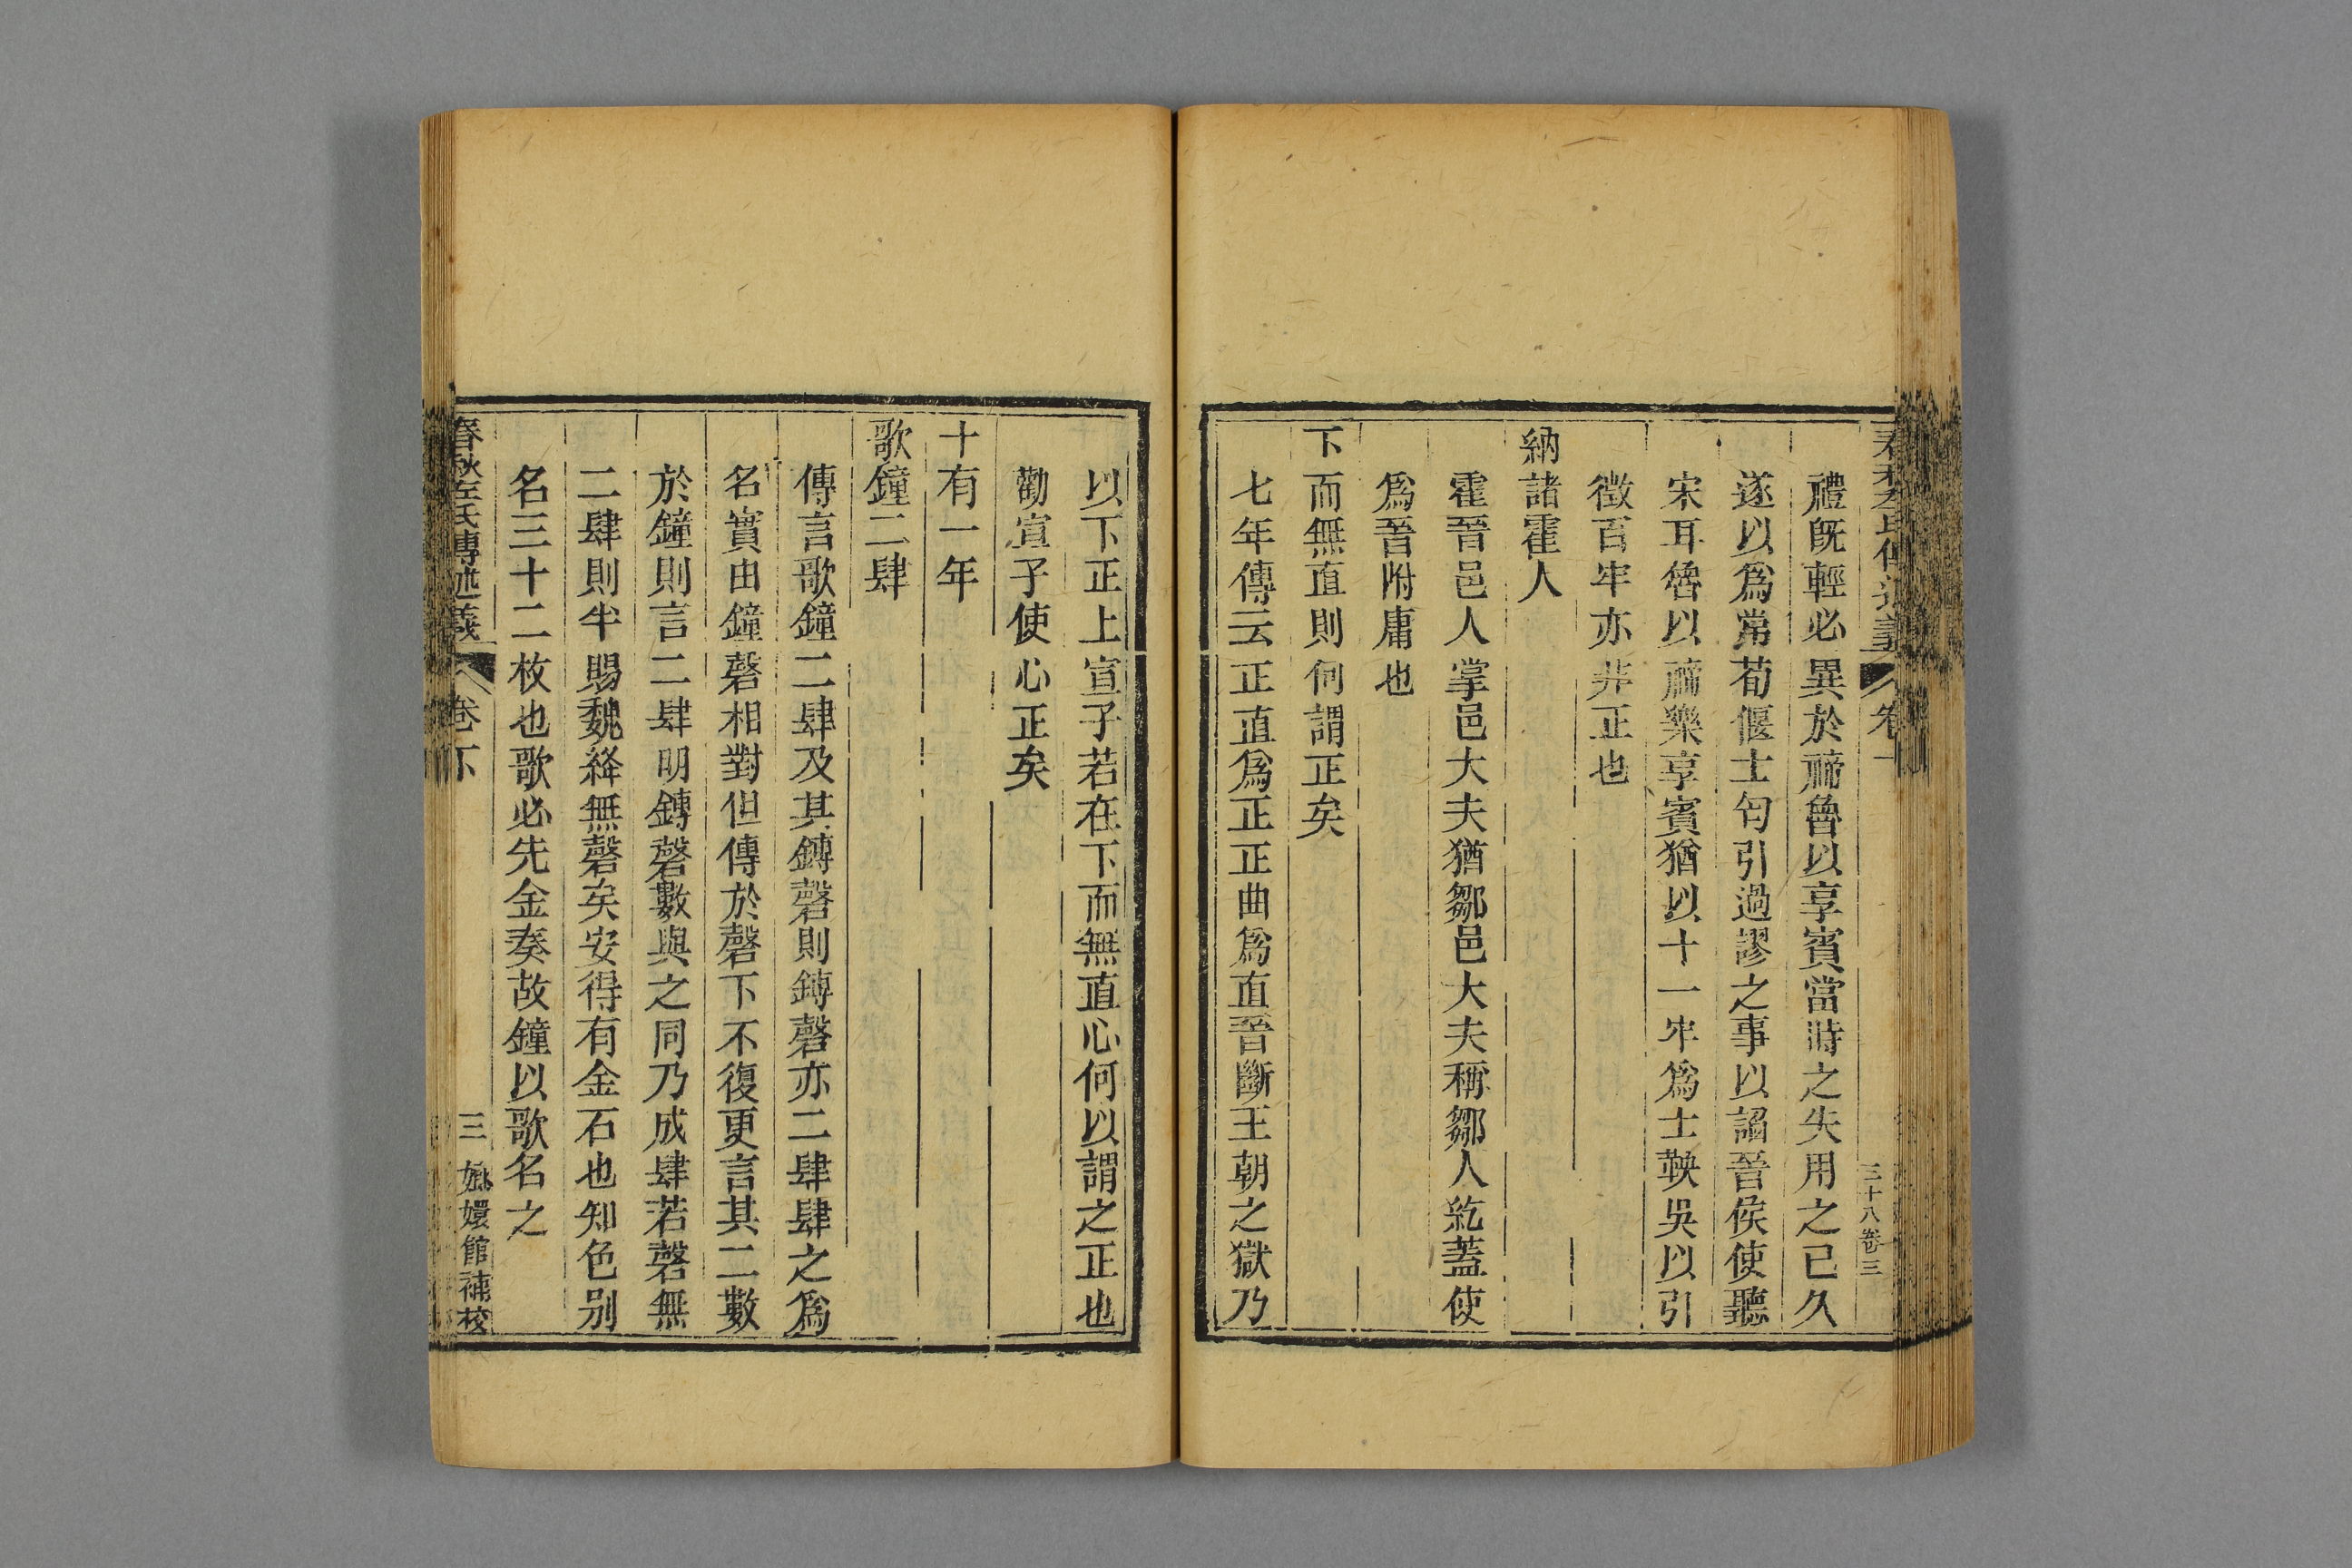 禮既輕必異於禘魯以享賓當時之失用之已久
遂以爲常荀偃士匄引過謬之事以謟晉侯使聽
宋耳魯以禘樂享賓猶以十一牢爲士鞅吳以引
徵百牢亦非正也
納諸霍人
霍晉邑人掌邑大夫猶鄒邑大夫稱鄒人紇蓋使
爲晉附庸也
下而無直則何謂正矣
七年傳云正直爲正正曲爲直晉斷王朝之獄乃
三十八卷三
以下正上宣子若在下而無直心何以謂之正也
勸宣子使心正矣
十有一年
歌鐘二肆
傳言歌鐘二肆及其鏄磬則鏄磬亦二肆肆之爲
名實由鐘磬相對但傳於磬下不復更言其二數
於鐘則言二肆明鏄磬數與之同乃成肆若磬無
二肆則半賜魏絳無磬矣安得有金石也知色别
名三十二枚也歌必先金奏故鐘以歌名之
春秋左氏傳述義 卷下 三 嫏嬛館補校